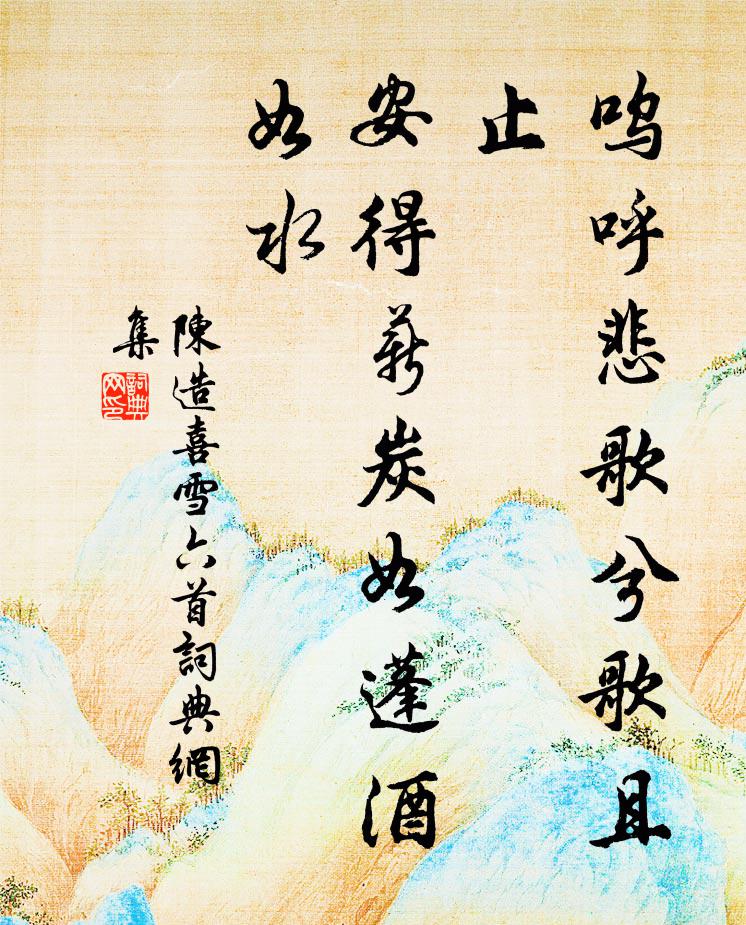 嗚呼悲歌兮歌且
止
安得薪炭如蓬酒
如水
陳造喜雪六首詞典網
集
詞典網印